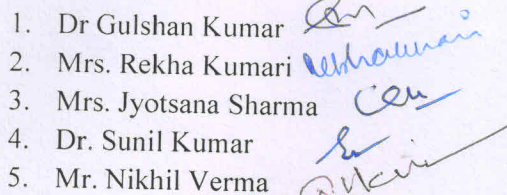 1. Dr Gulshan Kumar
2. Mrs. Rekha Kumari
3. Mrs. Jyotsana Sharma
4. Dr. Sunil Kumar
5. Mr. Nikhil Verma